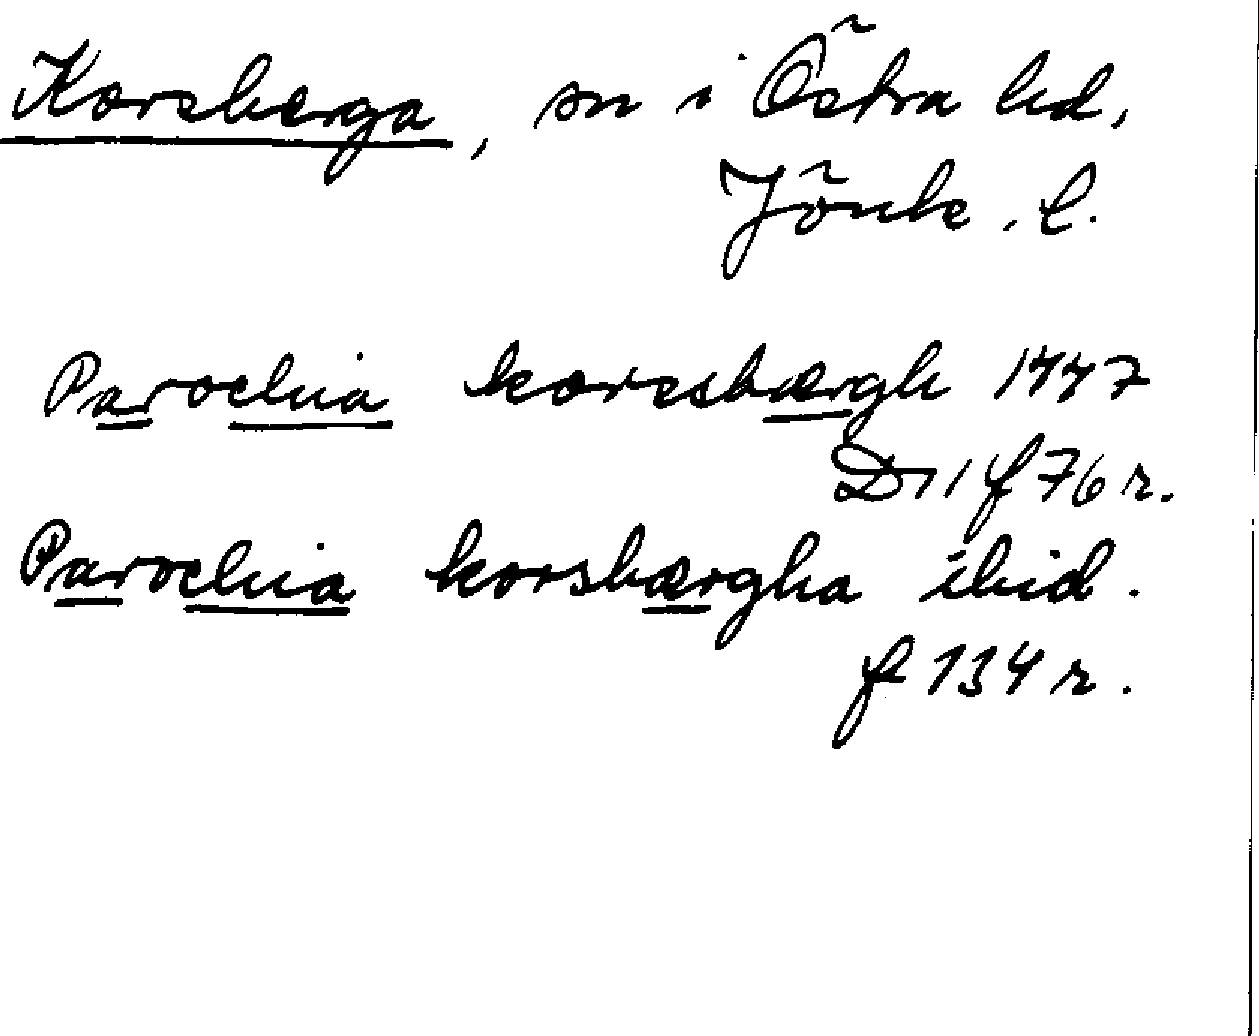 Korsberga, sn i Östra hd,
Jönk. l.
Parochia koresbærgh 1447
D 11 f 76 r.
Parochia korsbærgha ibid.
f 134 r.